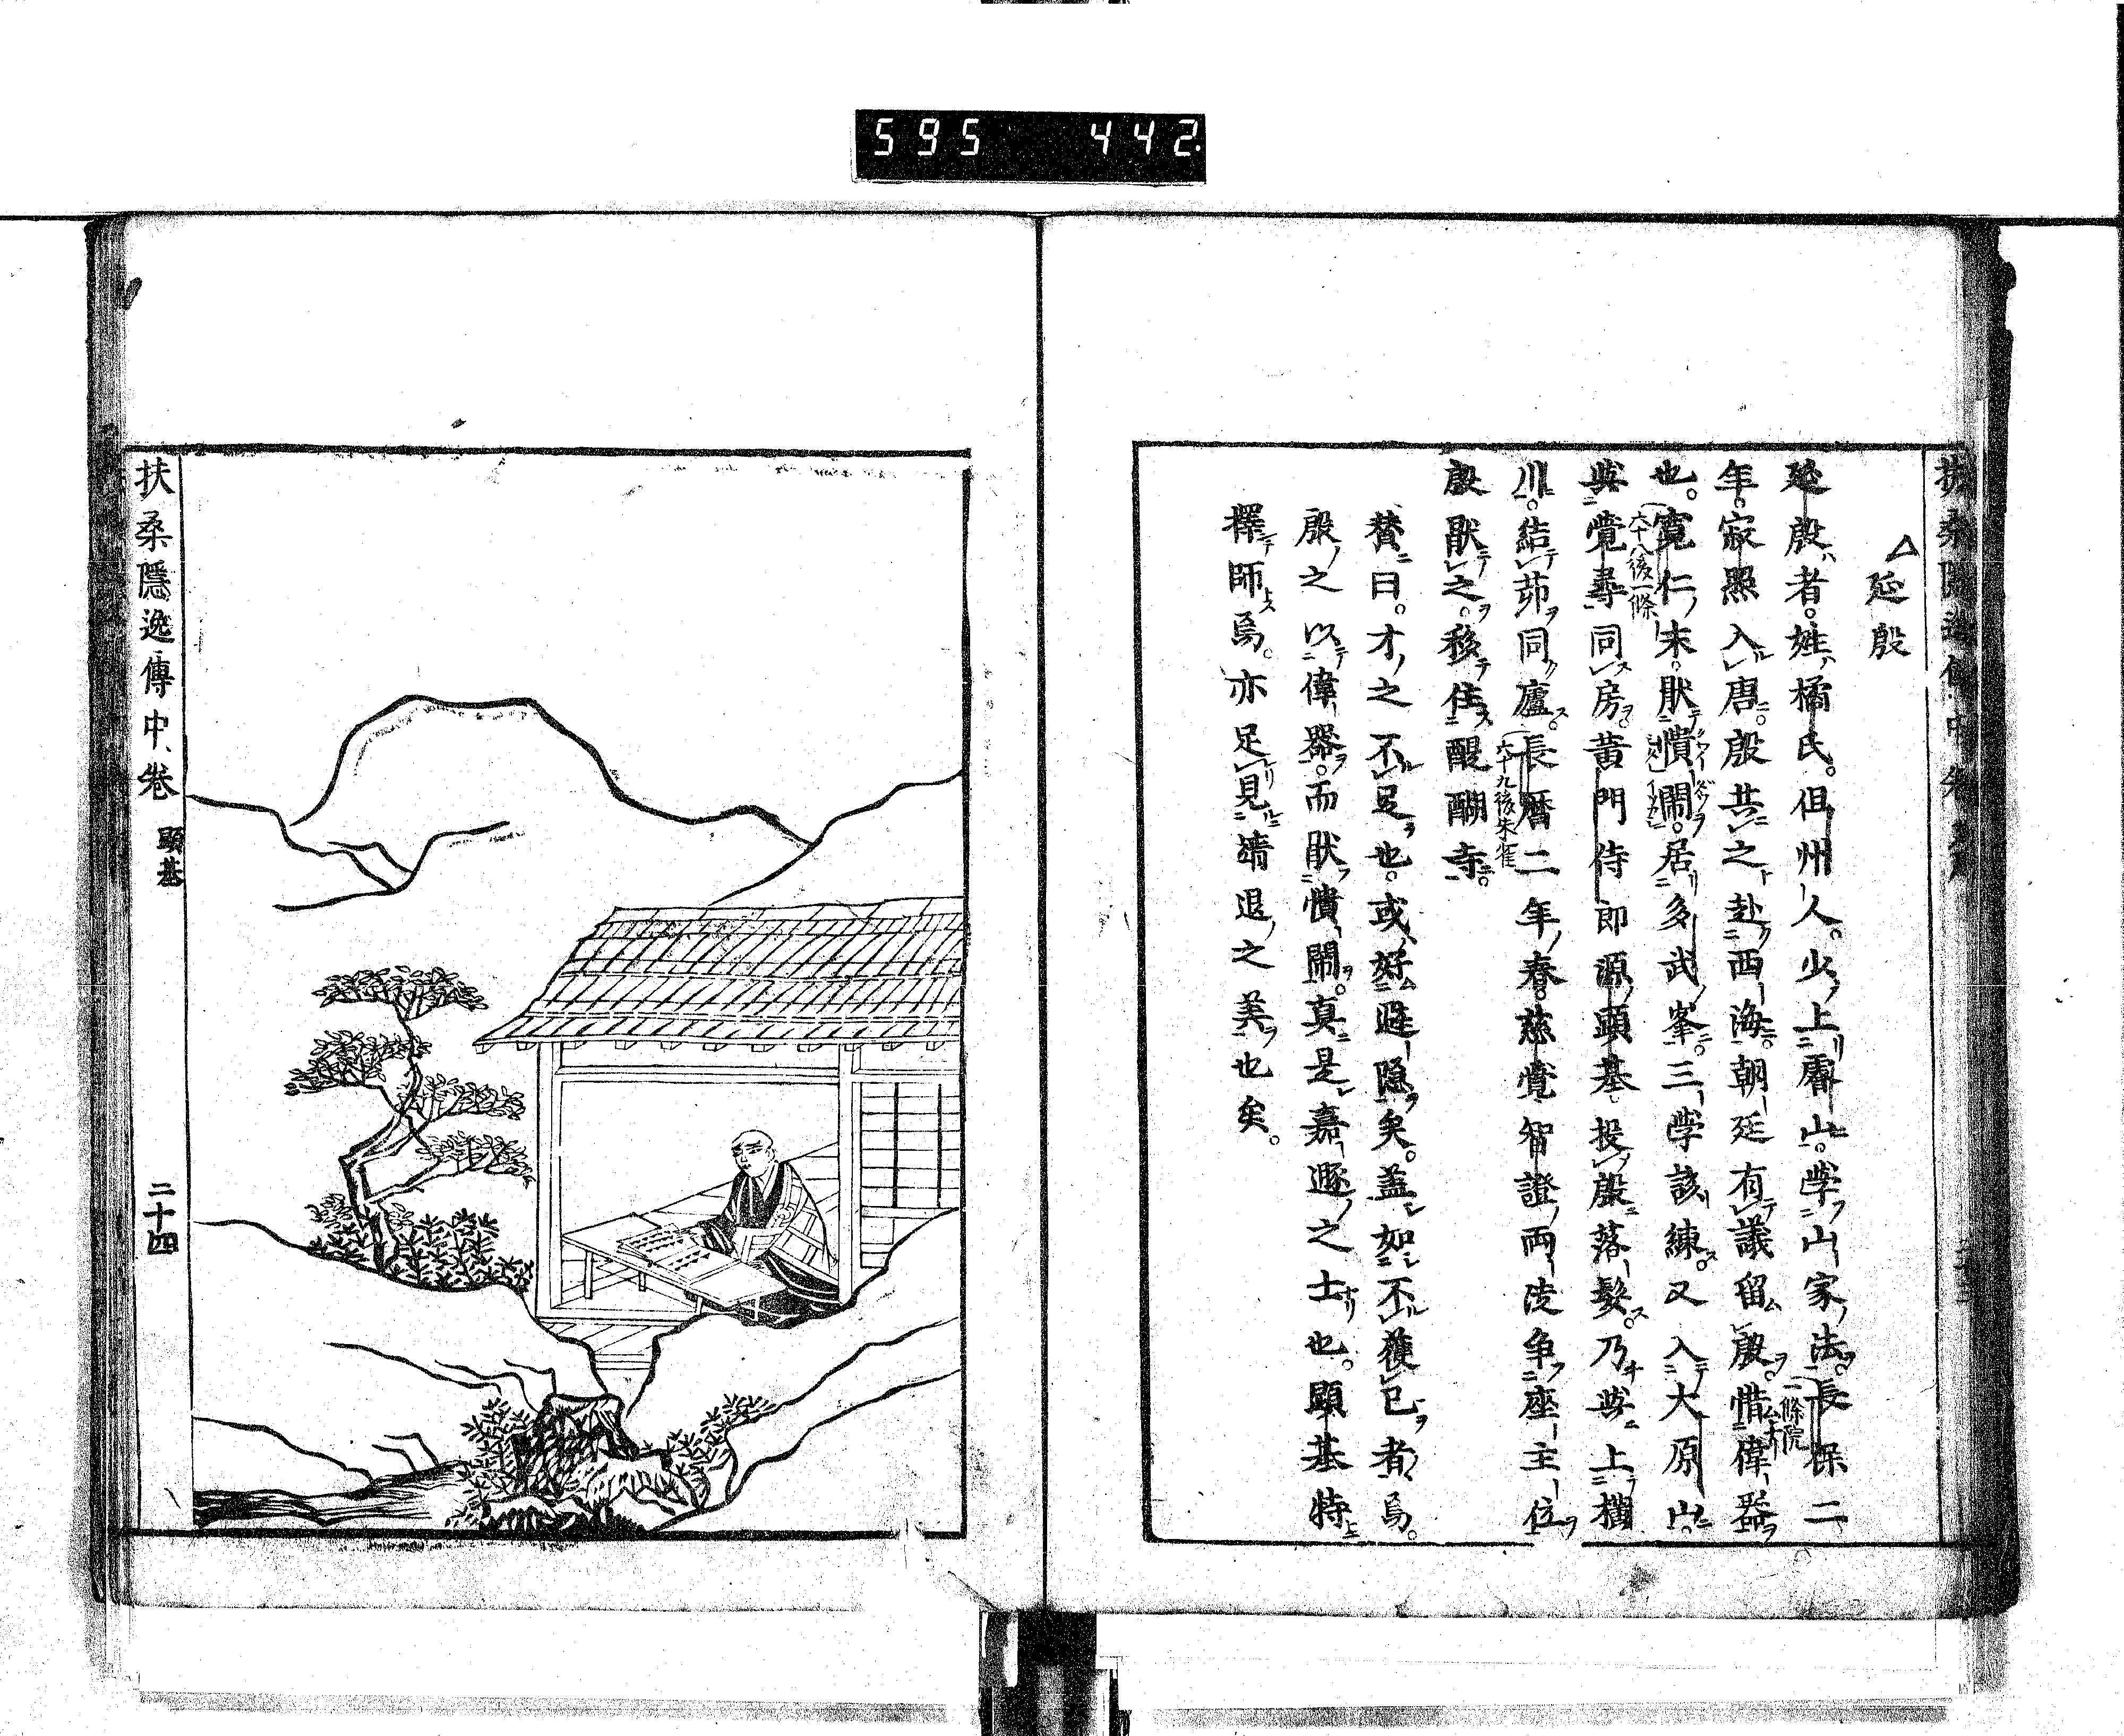 595 442.
扶桑隱逸傳中卷
△延殷
延殷者。姓橘氏。但州人。少上睿山。學山家法。長保二
一條院
年。寂照入唐。殷共之赴西海。朝廷有議留殷。惜偉器
也。寛仁末。厭憒閙。居多武峯。三學該練。又入大原山。
六十八後一條
與覺尋同房。黄門侍郎源顯基投殷落髮。乃與上横
川。結茆同廬。長暦二年春。慈覺智證兩淩争座主位。
六十九後朱雀
殷厭之。移住醍醐寺。
賛曰。才之不足也。或好避隱矣。盖如不獲已者焉。
殷之以偉器。而厭憒閙。真是嘉遯之士也。顯基特
擇師焉。亦足見靖退之美也矣。
扶桑隱逸傳中卷 顯基 二十四